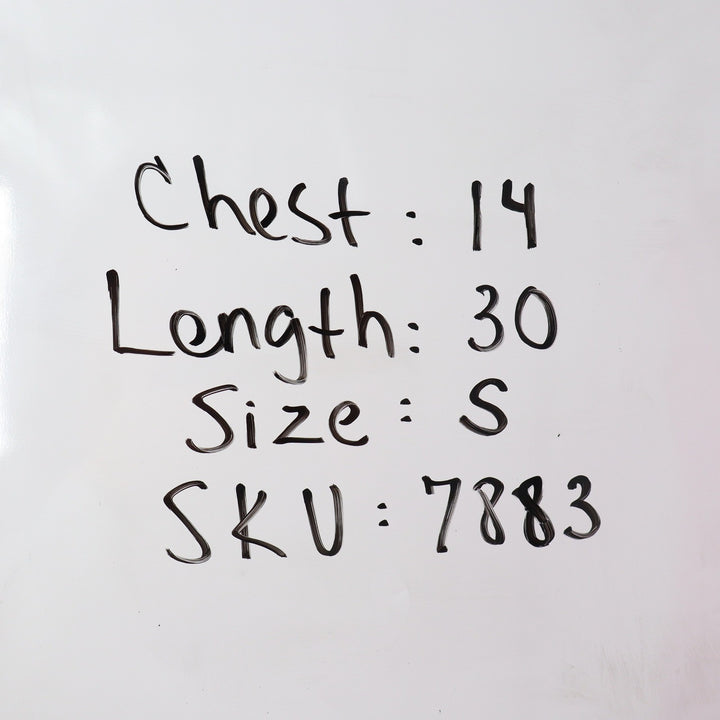 Chest: 14
Length: 30
Size: S
SKU: 7883